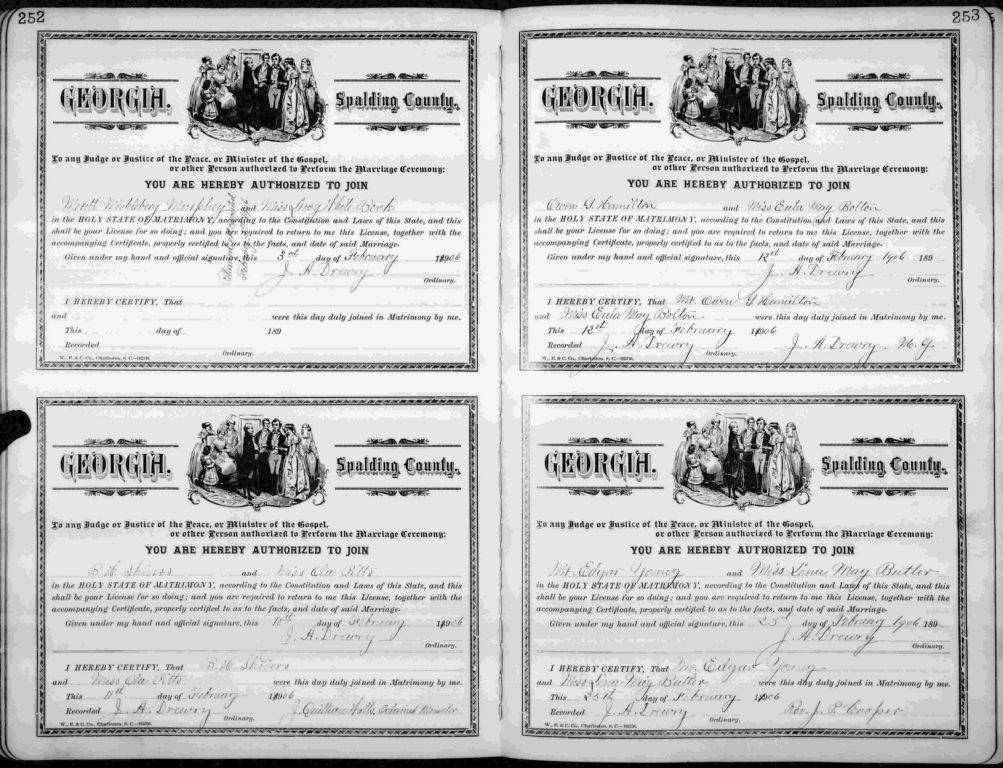 252
GEORGIA. Spalding County.
To any Judge or Justice of the Peace, or Minister of the Gospel,
or other Person authorized to Perform the Marriage Ceremony:
YOU ARE HEREBY AUTHORIZED TO JOIN
and Miss Lucy
in the HOLY STATE OF MATRIMONY, according to the Constitution and Laws of this State, and this
shall be your License for so doing; and you are required to return to me this License, together with the
accompanying Certificate, properly certified to as to the facts, and date of said Marriage.
Given under my hand and official signature, this 3rd day of February 1906
J. A. Drewry
Ordinary.
I HEREBY CERTIFY, That
and were this day duly joined in Matrimony by me.
This day of 189
Recorded
Ordinary.
W., E. & C. Co., Charleston, S. C.
GEORGIA. Spalding County.
To any Judge or Justice of the Peace, or Minister of the Gospel,
or other Person authorized to Perform the Marriage Ceremony:
YOU ARE HEREBY AUTHORIZED TO JOIN
Shivers and Miss Ola Pitts
in the HOLY STATE OF MATRIMONY, according to the Constitution and Laws of this State, and this
shall be your License for so doing; and you are required to return to me this License, together with the
accompanying Certificate, properly certified to as to the facts, and date of said Marriage.
Given under my hand and official signature, this 10th day of February 1906
J. A. Drewry
Ordinary.
I HEREBY CERTIFY, That Shivers
and Miss Ola Pitts were this day duly joined in Matrimony by me.
This 11th day of February 1906
Recorded J. A. Drewry Ordained Minister
Ordinary.
W., E. & C. Co., Charleston, S. C.
253
GEORGIA. Spalding County.
To any Judge or Justice of the Peace, or Minister of the Gospel,
or other Person authorized to Perform the Marriage Ceremony:
YOU ARE HEREBY AUTHORIZED TO JOIN
Owen G. Hamilton and Miss Eula May Bolton
in the HOLY STATE OF MATRIMONY, according to the Constitution and Laws of this State, and this
shall be your License for so doing; and you are required to return to me this License, together with the
accompanying Certificate, properly certified to as to the facts, and date of said Marriage.
Given under my hand and official signature, this 12th day of February 1906 189
J. A. Drewry
Ordinary.
I HEREBY CERTIFY, That Mr. Owen G. Hamilton
and Miss Eula May Bolton were this day duly joined in Matrimony by me.
This 12th day of February 1906
Recorded J. A. Drewry J. A. Drewry, M. G.
Ordinary.
W., E. & C. Co., Charleston, S. C.
GEORGIA. Spalding County.
To any Judge or Justice of the Peace, or Minister of the Gospel,
or other Person authorized to Perform the Marriage Ceremony:
YOU ARE HEREBY AUTHORIZED TO JOIN
Mr. Edgar Young and Miss Lena May Butler
in the HOLY STATE OF MATRIMONY, according to the Constitution and Laws of this State, and this
shall be your License for so doing; and you are required to return to me this License, together with the
accompanying Certificate, properly certified to as to the facts, and date of said Marriage.
Given under my hand and official signature, this day of February 1906 189
J. A. Drewry
Ordinary.
I HEREBY CERTIFY, That Mr. Edgar Young
and Miss Lena May Butler were this day duly joined in Matrimony by me.
This 25th day of February 1906
Recorded J. A. Drewry Rev. J. P. Cooper
Ordinary.
W., E. & C. Co., Charleston, S. C.